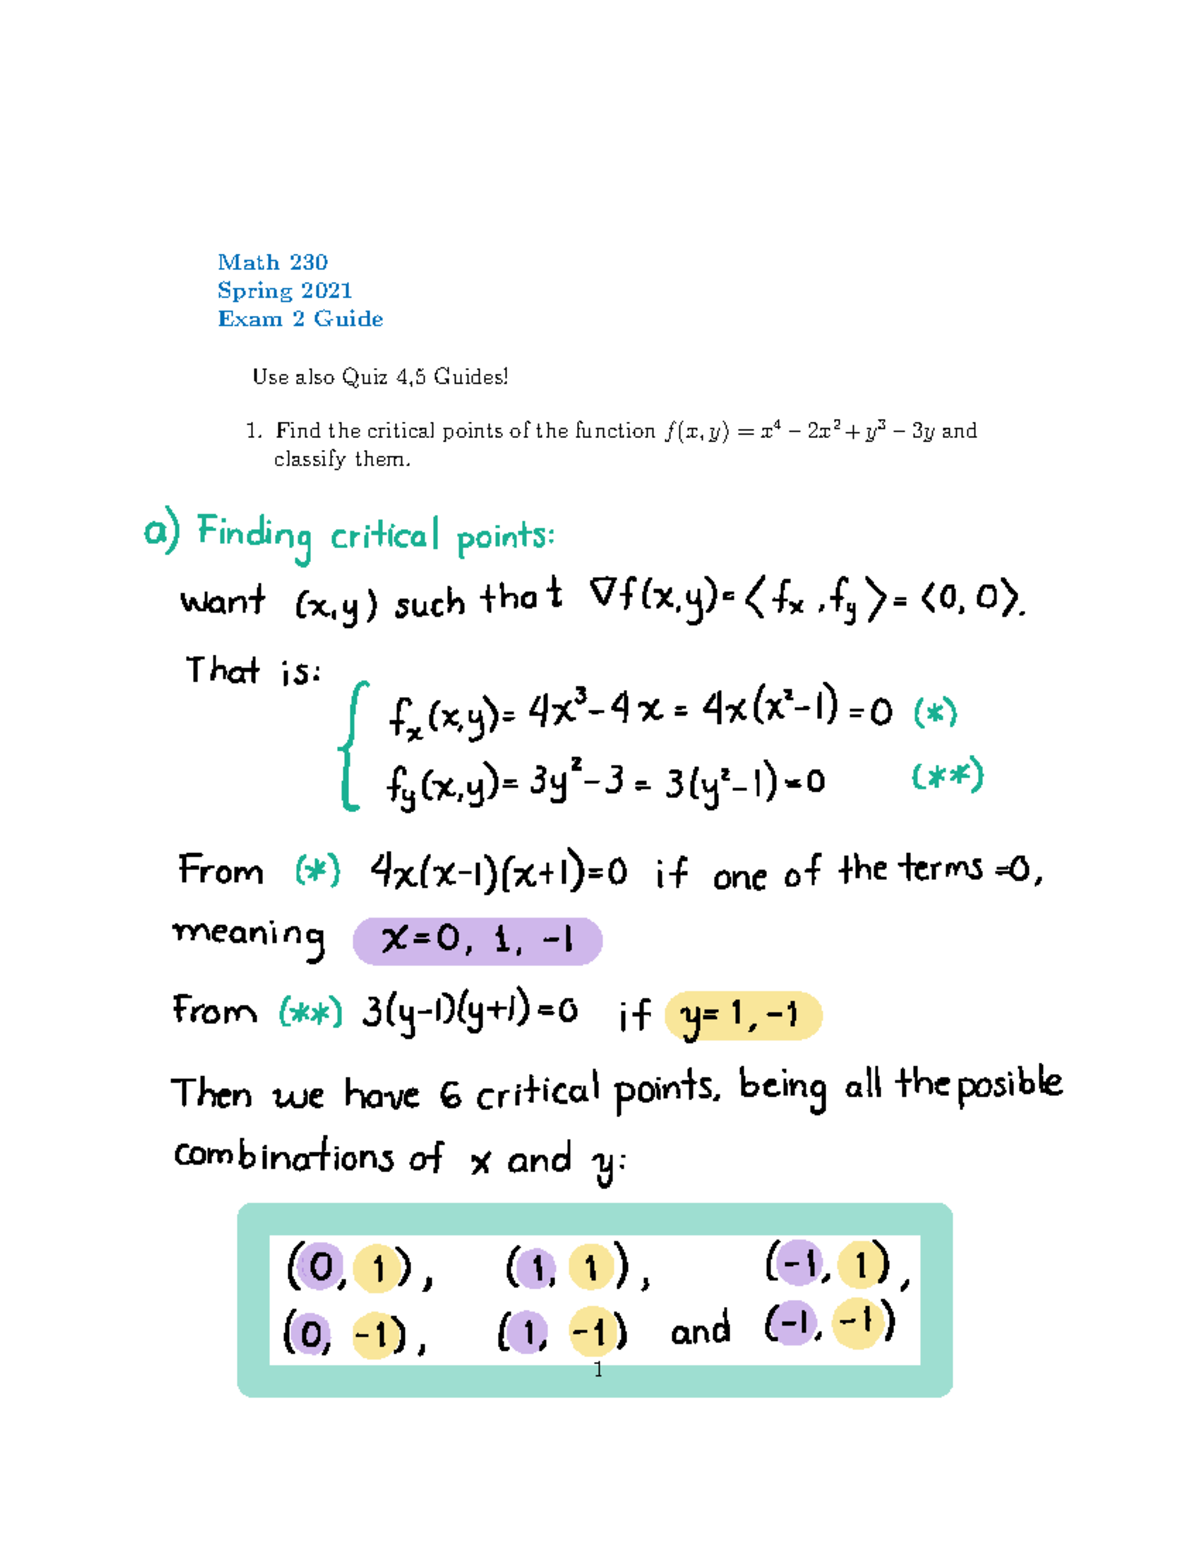 Math 230
Spring 2021
Exam 2 Guide
Use also Quiz 4,5 Guides!
1. Find the critical points of the function f(x, y) = x⁴ − 2x² + y³ − 3y and
classify them.
a) Finding critical points:
want (x,y) such that ∇f(x,y)= ⟨fₓ , f_y⟩ = ⟨0, 0⟩.
That is:
fₓ(x,y)= 4x³-4x = 4x(x²-1) = 0 (*)
f_y(x,y)= 3y²-3 = 3(y²-1) = 0 (**)
From (*) 4x(x-1)(x+1)=0 if one of the terms =0,
meaning x=0, 1, -1
From (**) 3(y-1)(y+1)=0 if y= 1, -1
Then we have 6 critical points, being all the posible
combinations of x and y:
(0, 1), (1, 1), (-1, 1),
(0, -1), (1, -1) and (-1, -1)
1